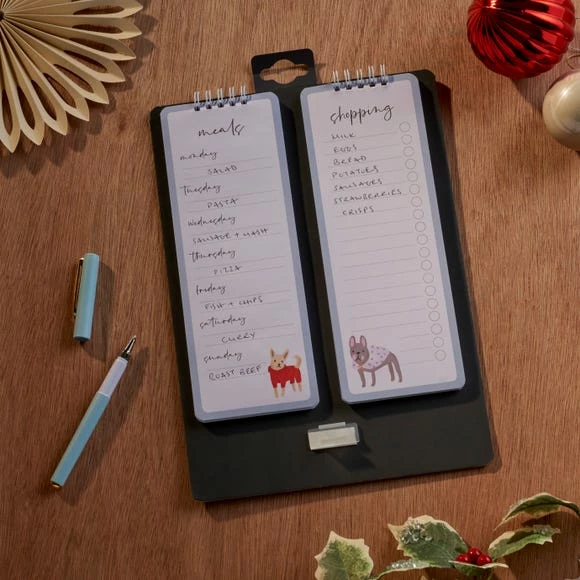 meals
monday
SALAD
tuesday
PASTA
wednesday
SAUSAGE + MASH
thursday
PIZZA
friday
FISH + CHIPS
saturday
CURRY
sunday
ROAST BEEF
shopping
MILK
EGGS
BREAD
POTATOES
SAUSAGES
STRAWBERRIES
CRISPS